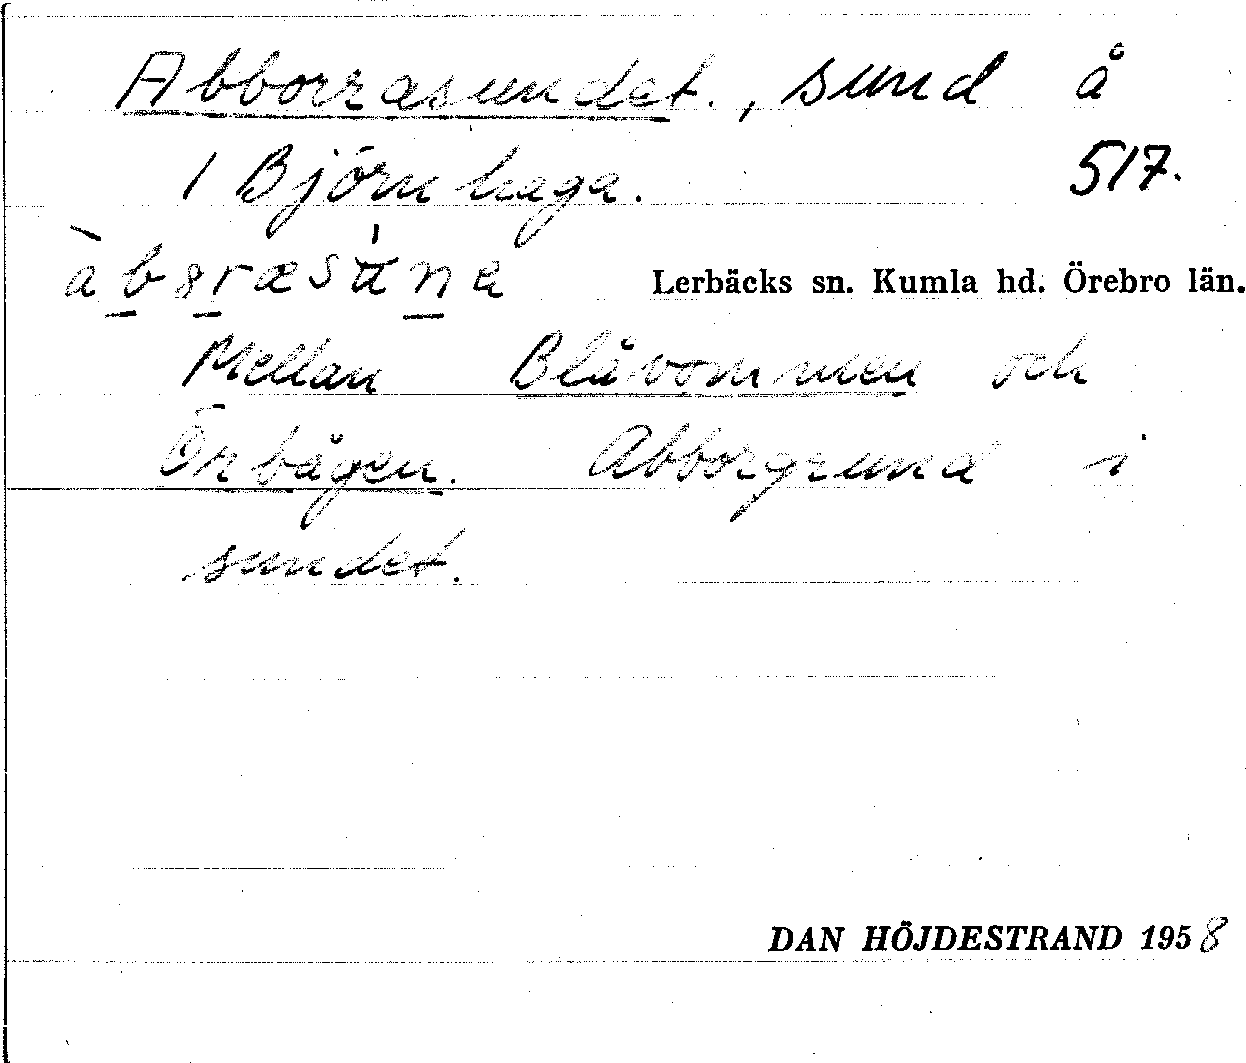 Abborrasundet., sund å
1 Björnhaga. 517.
Lerbäcks sn. Kumla hd. Örebro län.
Mellan Blåvommen och
Örbågen. Abborgrund i
sundet.
DAN HÖJDESTRAND 1958